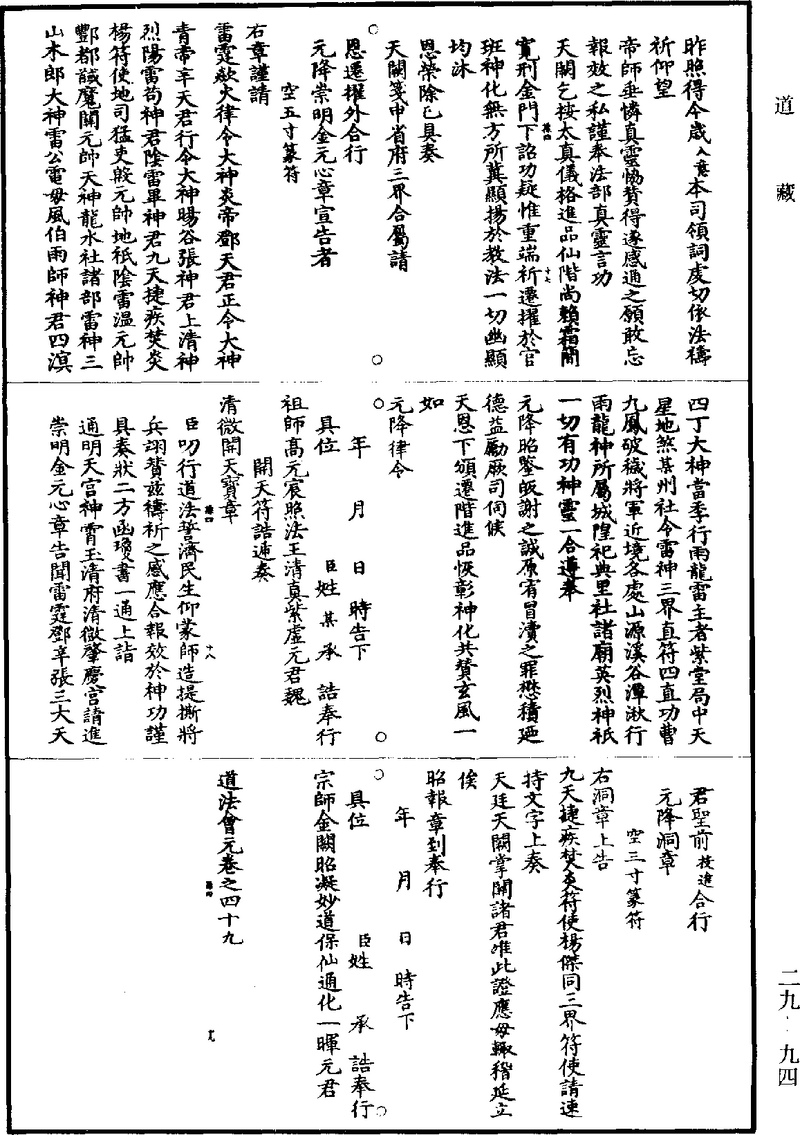 道藏
昨照得今歲入意本司領詞虔切依法禱
祈仰望
帝師垂憐真靈協贊得遂感通之願敢忘
報效之私謹奉法部真靈言功
天闕乞按太真儀格進品仙階尚賴霜簡
寬刑金門下詔功疑惟重端祈遷擢於官
班神化無方所冀顯揚於教法一切幽顯
均沐
恩榮除已具奏
天闕箋申省府三界合屬請
恩遷擢外合行
元降崇明金元心章宣告者
空五寸篆符
右章謹請
雷霆歘火律令大神炎帝鄧天君正令大神
青帝辛天君行令大神暘谷張神君上清神
烈陽雷苟神君陰雷畢神君九天捷疾焚炎
楊符使地司猛吏殷元帥地祇陰雷溫元帥
酆都馘魔關元帥天神龍水社諸部雷神三
山木郎大神雷公電母風伯雨師神君四溟
四丁大神當季行雨龍雷主者紫堂局中天
星地煞某州社令雷神三界直符四直功曹
九鳳破穢將軍近境各處山源溪谷潭湫行
雨龍神所屬城隍祀典里社諸廟英烈神祇
一切有功神靈一合遵奉
元降昭鑒皈謝之誠原宥冒瀆之罪懋積廼
德益勵厥司伺候
天恩下頒遷階進品恢彰神化共贊玄風一
如
元降律令
年 月 日 時告下
具位 臣姓某承誥奉行
祖師高元宸照法王清真紫虛元君魏
開天符誥連奏
清微開天寶章
臣叨行道法誓濟民生仰蒙師造提撕將
兵翊贊茲禱祈之感應合報效於神功謹
具奏狀二方函瓊書一通上詣
通明天宮神霄玉清府清微肇慶宮請進
崇明金元心章告聞雷霆鄧辛張三大天
君聖前投進合行
元降洞章
空三寸篆符
右洞章上告
九天捷疾焚炎符使楊傑同三界符使請速
持文字上奏
天廷天闕掌閽諸君准此證應毋輒稽延立
俟
昭報章到奉行
年 月 日 時告下
具位 臣姓 承誥奉行
宗師金闕昭凝妙道保仙通化一暉元君
道法會元卷之四十九
二九·九四